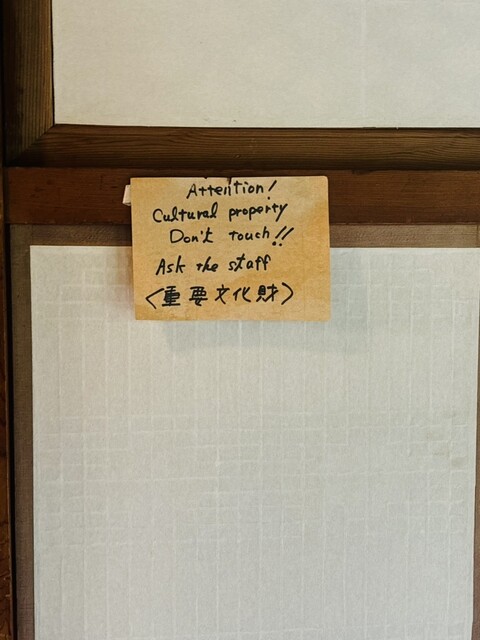 Attention!
Cultural property
Don't touch!!
Ask the staff
〈重要文化財〉